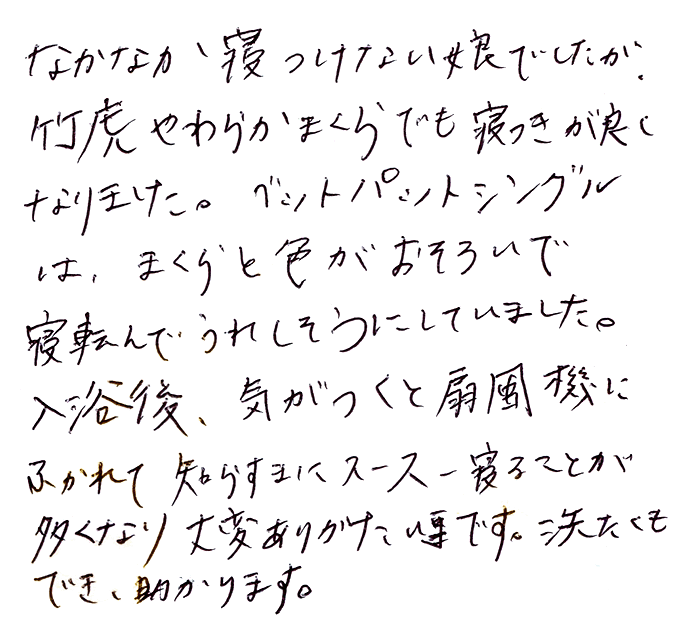 なかなか寝つけない娘でしたが、
竹虎やわらかまくらでも寝つきが良く
なりました。ベットパットシングル
は、まくらと色がおそろいで
寝転んでうれしそうにしていました。
入浴後、気がつくと扇風機に
ふかれて知らずまにスースー寝ることが
多くなり大変ありがたい事です。洗たくも
でき、助かります。